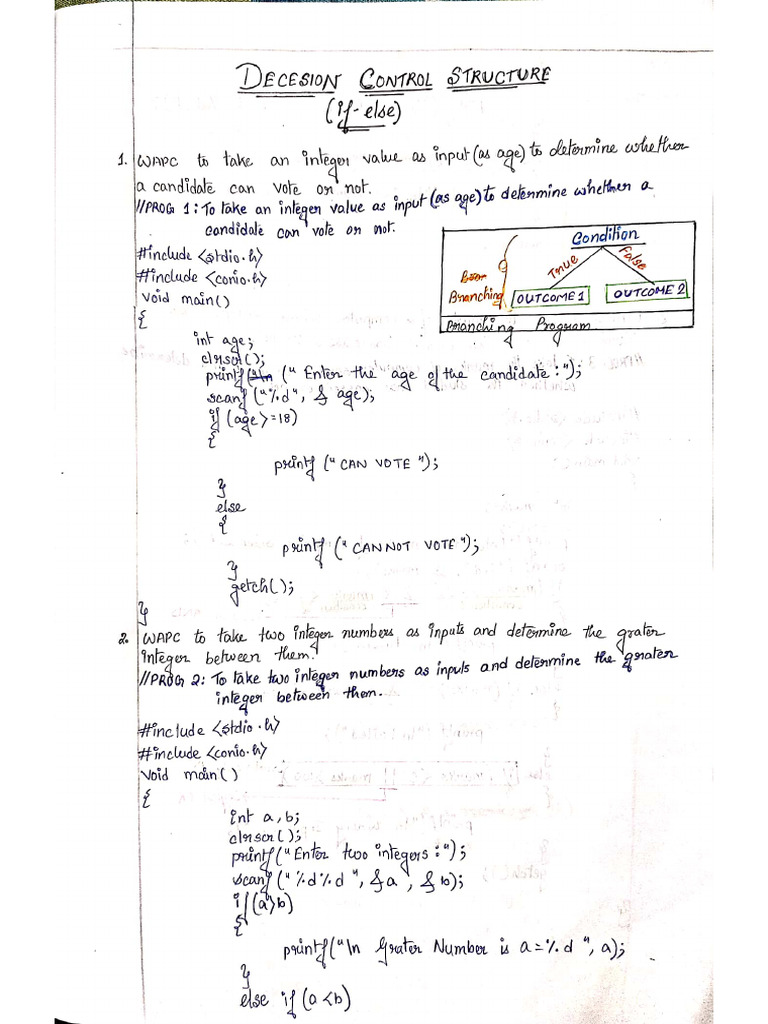 DECESION CONTROL STRUCTURE
(if-else)
1. WAPC to take an integer value as input (as age) to determine whether
a candidate can vote or not.
//PROG 1: To take an integer value as input (as age) to determine whether a
candidate can vote or not.
#include <stdio.h>
#include <conio.h>
void main()
{
Condition
True
False
Branching
OUTCOME 1
OUTCOME 2
Branching Program
int age;
clrscr();
printf (" Enter the age of the candidate :");
scanf ("%d", & age);
if (age >=18)
{
printf (" CAN VOTE ");
}
else
{
printf (" CANNOT VOTE ");
}
getch();
}
2. WAPC to take two integer numbers as inputs and determine the grater
integer between them.
//PROG 2: To take two integer numbers as inputs and determine the grater
integer between them.
#include <stdio.h>
#include <conio.h>
void main()
{
int a, b;
clrscr();
printf("Enter two integers :");
scanf ("%d%d ", &a , & b);
if (a>b)
{
printf("\n Grater Number is a=%d ", a);
}
else if (a<b)